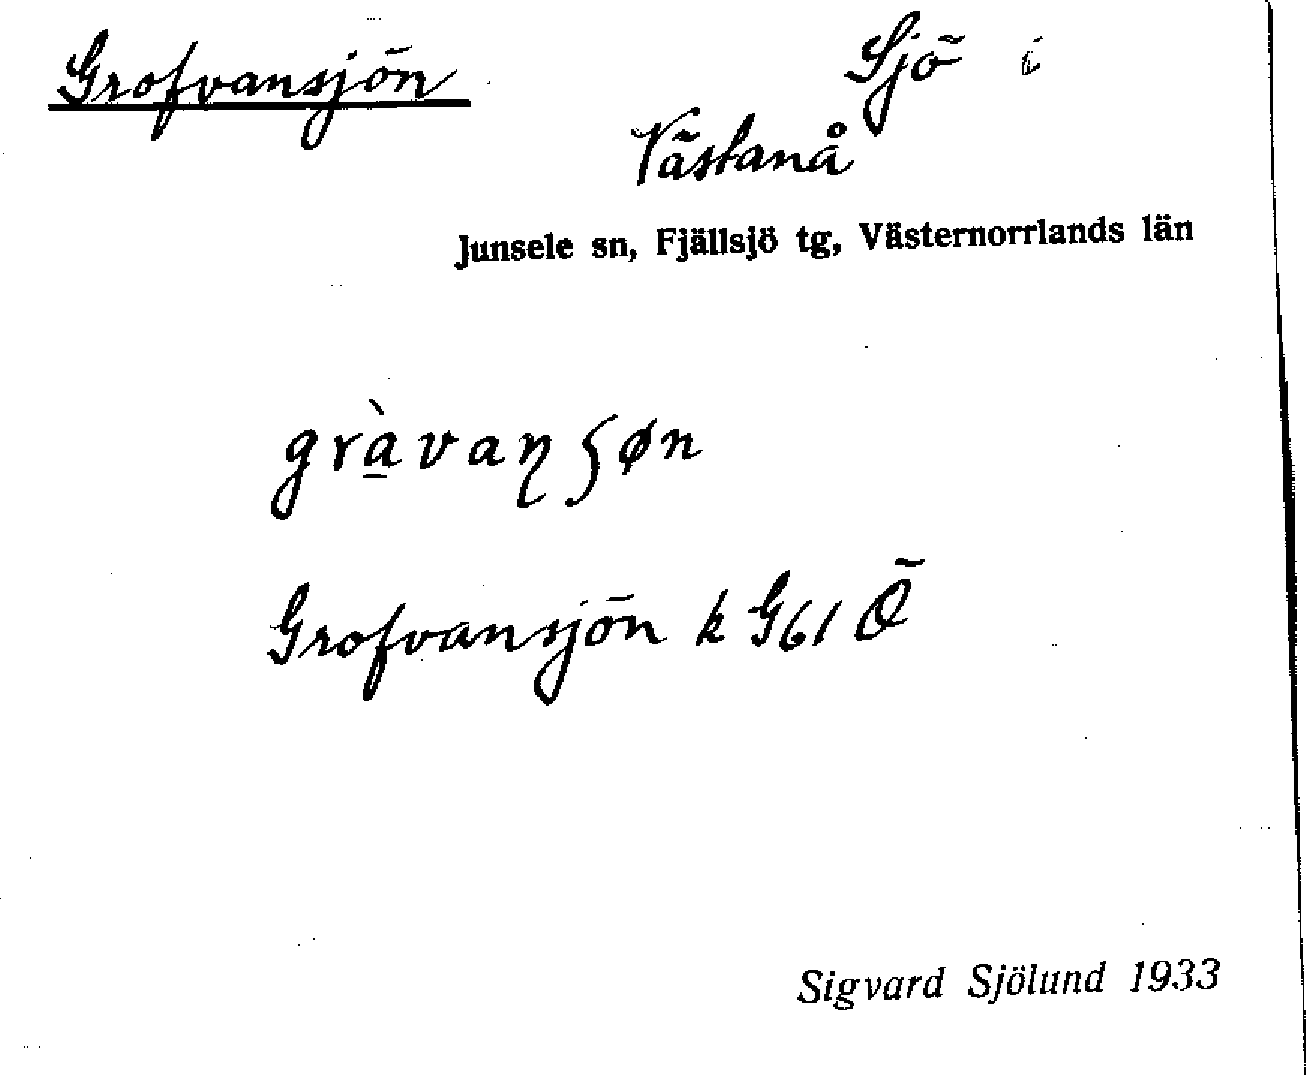 Grofvansjön
Sjö i
Västanå
Junsele sn, Fjällsjö tg, Västernorrlands län
grà̲vaŋʃøn
Grofvansjön k G61 Ö
Sigvard Sjölund 1933